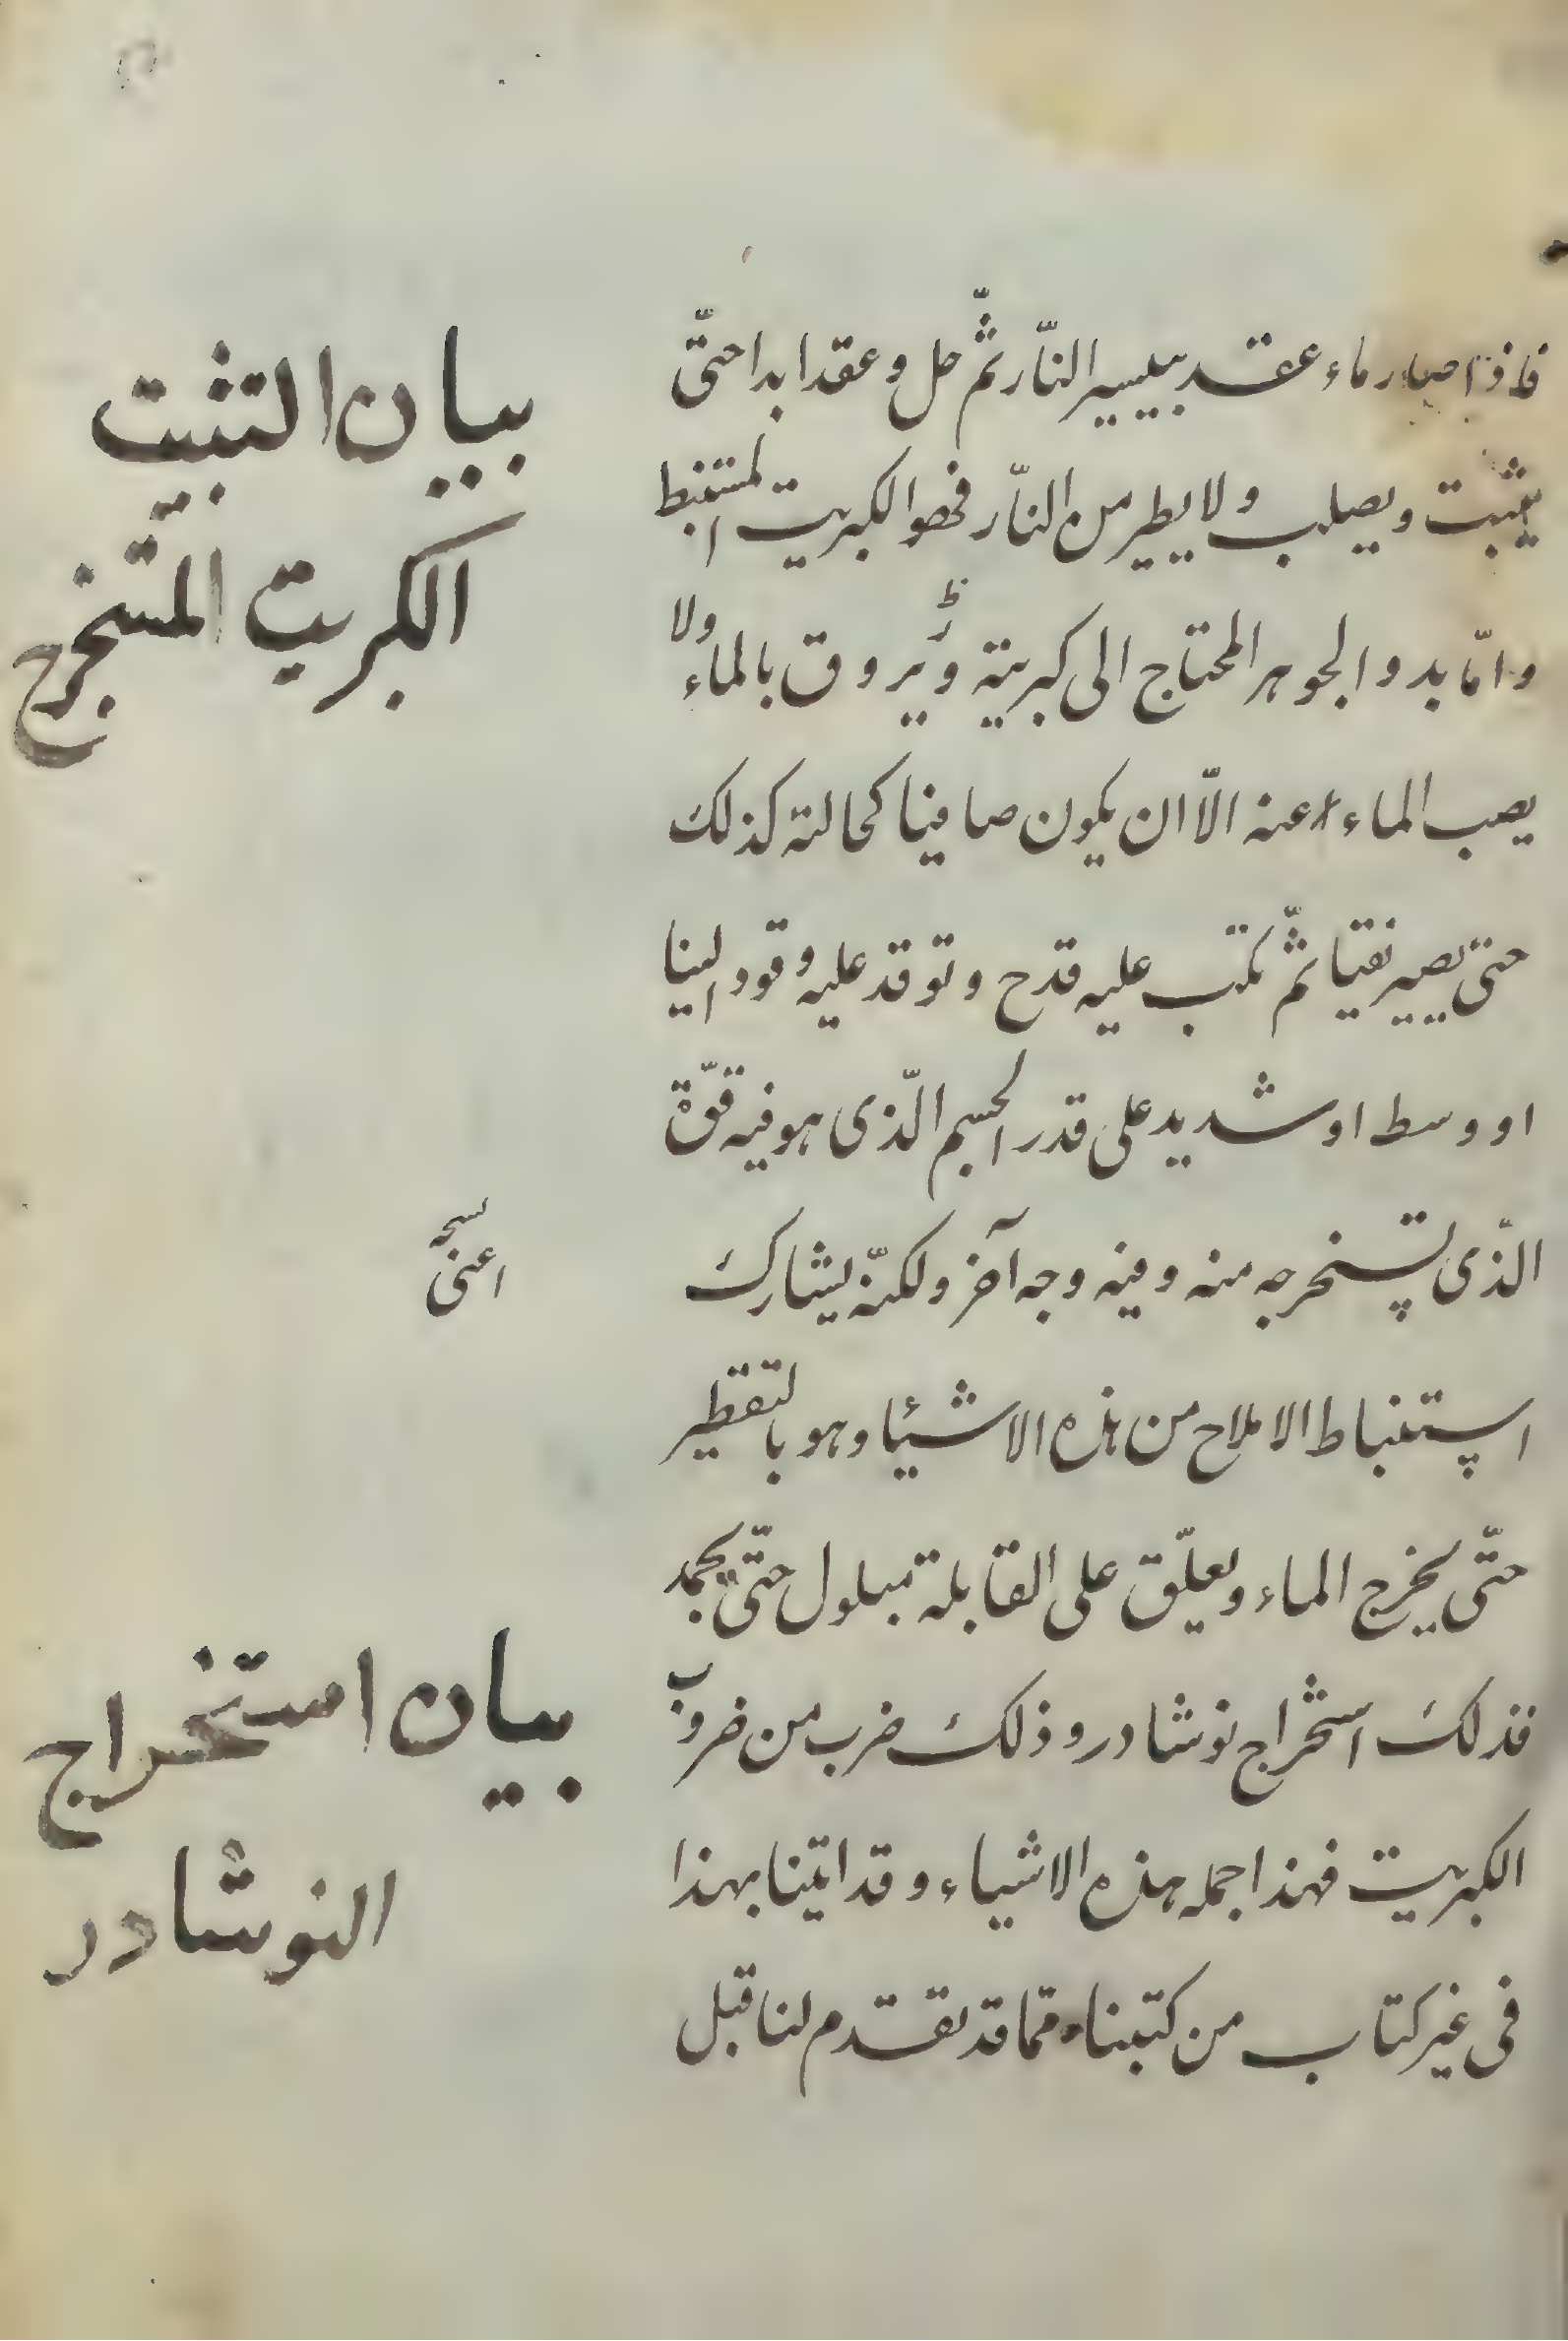 فاذا صار ماء عقد بيسير النّار ثمّ حل وعقد ابدا حتّى
يثبت ويصلب ولا يطير من النّار فهو الكبريت المستنبط
وامّا بدو الجوهر المحتاج الى كبريتة ويروق بالماء ولا
يصب الماء عنه الّا ان يكون صافيا كحالته كذلك
حتى يصير نقيا ثمّ يكتب عليه قدح وتوقد عليه وقود الينا
او وسط او شديد على قدر الجسم الّذى هو فيه قوّة
الّذى تستخرجه منه وفيه وجه آخر ولكنّه يشارك
استنباط الاملاح من هذه الاشيئا وهو بالتقطير
حتّى يخرج الماء ويعلّق على القابلة مبلول حتّى يجمد
فذلك استخراج نوشادر وذلك ضرب من ضروب
الكبريت فهذا جمله هذه الاشياء وقد اتينا بهذا
فى غير كتاب من كتبنا ممّا قد تقدم لنا قبل
بيان التثبيت
الكريت المستخرج
نسخه
اعنى
بيان استخراج
النوشادر